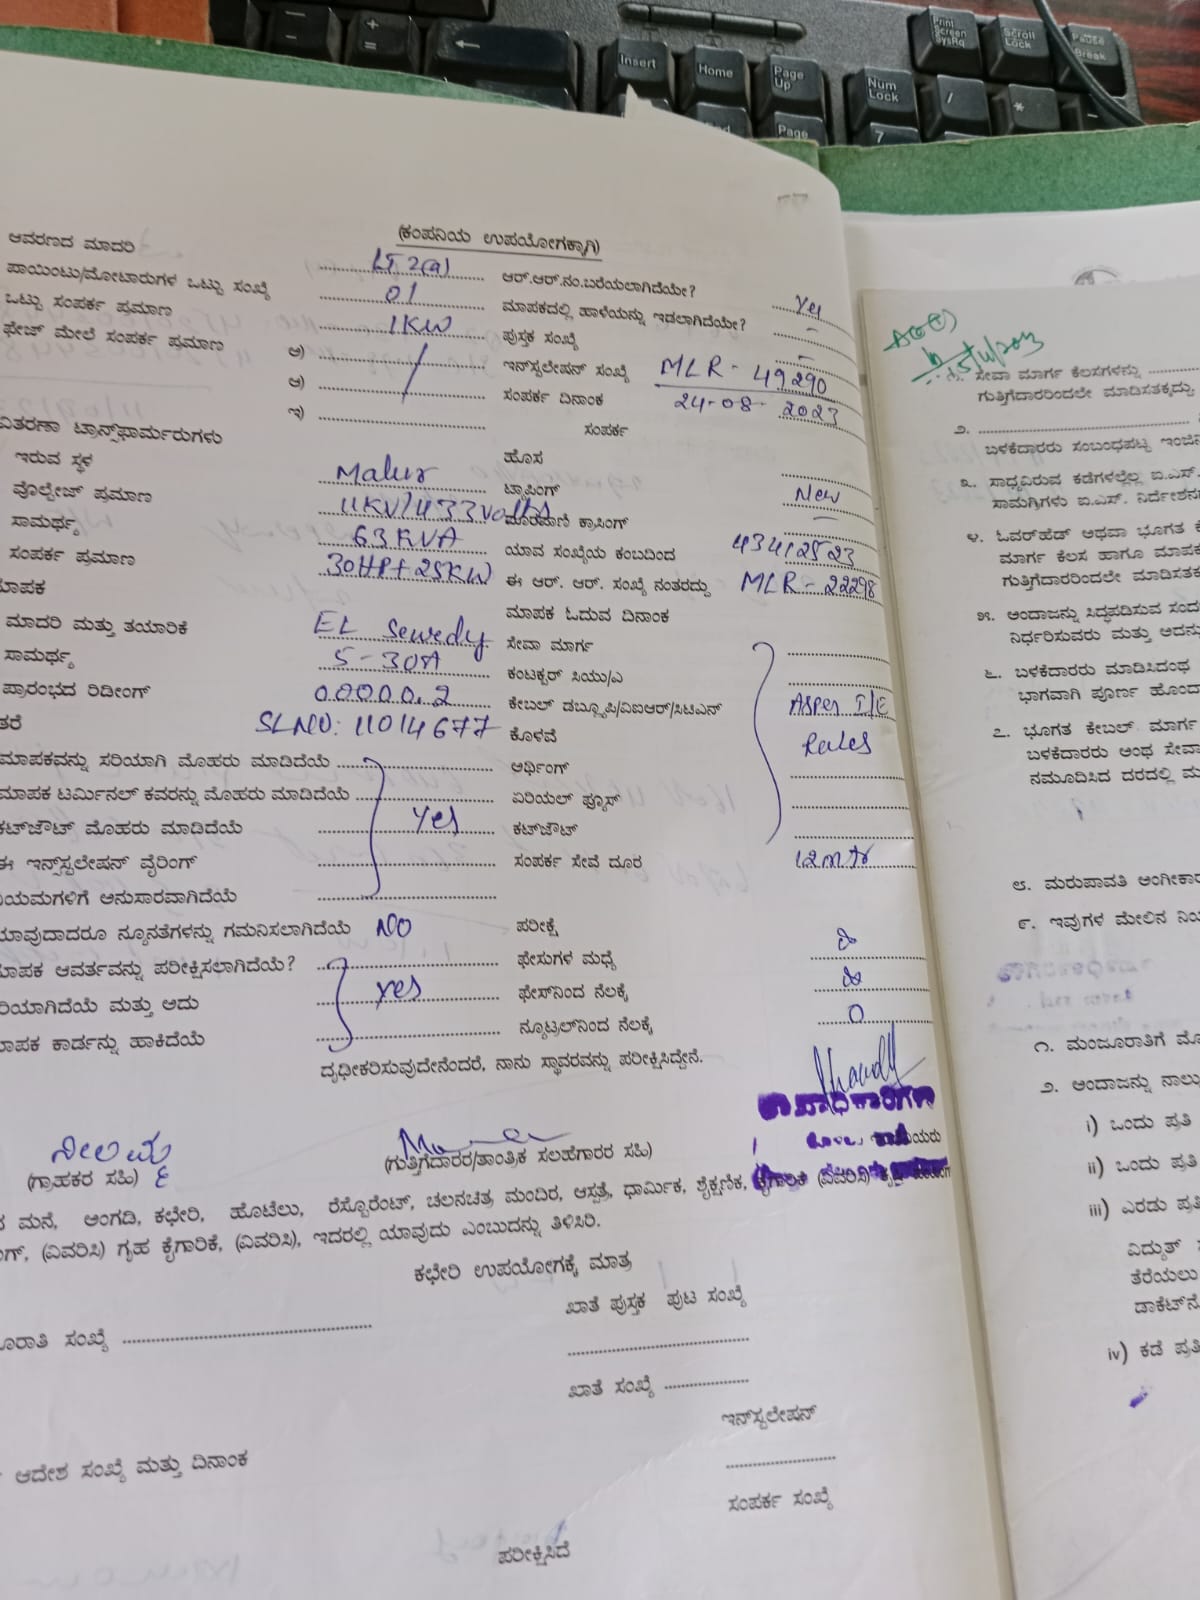 Insert
Home
Page Up
Page
Num Lock
Print Screen SysRq
Scroll Lock
Pause Break
/
*
7
(ಕಂಪನಿಯ ಉಪಯೋಗಕ್ಕಾಗಿ)
ಆವರಣದ ಮಾದರಿ LT 2(a) ಆರ್.ಆರ್.ನಂ.ಬರೆಯಲಾಗಿದೆಯೇ? Yes
ಪಾಯಿಂಟು/ಮೋಟಾರುಗಳ ಒಟ್ಟು ಸಂಖ್ಯೆ 01 ಮಾಪಕದಲ್ಲಿ ಹಾಳೆಯನ್ನು ಇಡಲಾಗಿದೆಯೇ? -
ಒಟ್ಟು ಸಂಪರ್ಕ ಪ್ರಮಾಣ 1KW ಪುಸ್ತಕ ಸಂಖ್ಯೆ -
ಫೇಜ್ ಮೇಲೆ ಸಂಪರ್ಕ ಪ್ರಮಾಣ ಅ) ಇನ್‌ಸ್ಟಲೇಷನ್ ಸಂಖ್ಯೆ MLR - 49290
ಆ) ಸಂಪರ್ಕ ದಿನಾಂಕ 24-08-2023
ಇ) ಸಂಪರ್ಕ
ವಿತರಣಾ ಟ್ರಾನ್ಸ್‌ಫಾರ್ಮರುಗಳು
ಇರುವ ಸ್ಥಳ Malur ಹೊಸ
ವೊಲ್ಟೇಜ್ ಪ್ರಮಾಣ 11KV/433volts ಟ್ಯಾಪಿಂಗ್ New
ಸಾಮರ್ಥ್ಯ 63KVA ಕ್ರಾಸಿಂಗ್ -
ಸಂಪರ್ಕ ಪ್ರಮಾಣ 30HP+25KW ಯಾವ ಸಂಖ್ಯೆಯ ಕಂಬದಿಂದ
ಮಾಪಕ ಈ ಆರ್. ಆರ್. ಸಂಖ್ಯೆ ನಂತರದ್ದು MLR - 22298
ಮಾದರಿ ಮತ್ತು ತಯಾರಿಕೆ EL Sewedy ಮಾಪಕ ಓದುವ ದಿನಾಂಕ
ಸಾಮರ್ಥ್ಯ 5-30A ಸೇವಾ ಮಾರ್ಗ
ಪ್ರಾರಂಭದ ರಿಡೀಂಗ್ 00000.2 ಕಂಟಕ್ಟರ್ ಸಿಯು/ಎ
SLNO: 11014677 ಕೇಬಲ್ ಡಬ್ಲ್ಯೂಪಿ/ವಿಐಆರ್/ಸಿಟಿಎನ್ Asper I/E
ಕೊಳವೆ Rules
ಮಾಪಕವನ್ನು ಸರಿಯಾಗಿ ಮೊಹರು ಮಾಡಿದೆಯೆ ಆರ್ಥಿಂಗ್
ಮಾಪಕ ಟರ್ಮಿನಲ್ ಕವರನ್ನು ಮೊಹರು ಮಾಡಿದೆಯೆ ಏರಿಯಲ್ ಫ್ಯೂಸ್
ಕಟ್‌ಔಟ್ ಮೊಹರು ಮಾಡಿದೆಯೆ Yes ಕಟ್‌ಔಟ್
ಈ ಇನ್‌ಸ್ಟಲೇಷನ್ ವೈರಿಂಗ್ ಸಂಪರ್ಕ ಸೇವೆ ದೂರ 12mtr
ನಿಯಮಗಳಿಗೆ ಅನುಸಾರವಾಗಿದೆಯೆ
ಯಾವುದಾದರೂ ನ್ಯೂನತೆಗಳನ್ನು ಗಮನಿಸಲಾಗಿದೆಯೆ NO ಪರೀಕ್ಷೆ
ಮಾಪಕ ಆವರ್ತವನ್ನು ಪರೀಕ್ಷಿಸಲಾಗಿದೆಯೆ? ಫೇಸುಗಳ ಮಧ್ಯೆ
ಸರಿಯಾಗಿದೆಯೆ ಮತ್ತು ಅದು yes ಫೇಸ್‌ನಿಂದ ನೆಲಕ್ಕೆ
ಮಾಪಕ ಕಾರ್ಡನ್ನು ಹಾಕಿದೆಯೆ ನ್ಯೂಟ್ರಲ್‌ನಿಂದ ನೆಲಕ್ಕೆ 0
ದೃಢೀಕರಿಸುವುದೇನೆಂದರೆ, ನಾನು ಸ್ಥಾವರವನ್ನು ಪರೀಕ್ಷಿಸಿದ್ದೇನೆ.
(ಗ್ರಾಹಕರ ಸಹಿ) (ಗುತ್ತಿಗೆದಾರರ/ತಾಂತ್ರಿಕ ಸಲಹೆಗಾರರ ಸಹಿ)
ಮನೆ, ಅಂಗಡಿ, ಕಛೇರಿ, ಹೊಟೆಲು, ರೆಸ್ಟೊರೆಂಟ್, ಚಲನಚಿತ್ರ ಮಂದಿರ, ಆಸ್ಪತ್ರೆ, ಧಾರ್ಮಿಕ, ಶೈಕ್ಷಣಿಕ, ಕೈಗಾರಿಕೆ (ವಿವರಿಸಿ)
(ವಿವರಿಸಿ) ಗೃಹ ಕೈಗಾರಿಕೆ, (ವಿವರಿಸಿ), ಇದರಲ್ಲಿ ಯಾವುದು ಎಂಬುದನ್ನು ತಿಳಿಸಿರಿ.
ಕಛೇರಿ ಉಪಯೋಗಕ್ಕೆ ಮಾತ್ರ
ಖಾತೆ ಪುಸ್ತಕ ಪುಟ ಸಂಖ್ಯೆ
ಸಂಖ್ಯೆ
ಖಾತೆ ಸಂಖ್ಯೆ
ಇನ್‌ಸ್ಟಲೇಷನ್
ಆದೇಶ ಸಂಖ್ಯೆ ಮತ್ತು ದಿನಾಂಕ
ಸಂಪರ್ಕ ಸಂಖ್ಯೆ
ಪರೀಕ್ಷಿಸಿದೆ
ಸೇವಾ ಮಾರ್ಗ ಕೆಲಸಗಳನ್ನು
ಗುತ್ತಿಗೆದಾರರಿಂದಲೇ ಮಾಡಿಸತಕ್ಕದ್ದು.
೨.
ಬಳಕೆದಾರರು ಸಂಬಂಧಪಟ್ಟ
೩. ಸಾಧ್ಯವಿರುವ ಕಡೆಗಳಲ್ಲೆಲ್ಲ ಐ.ಎಸ್.
ಸಾಮಗ್ರಿಗಳು ಐ.ಎಸ್.
೪. ಓವರ್‌ಹೆಡ್ ಅಥವಾ ಭೂಗತ
ಮಾರ್ಗ ಕೆಲಸ ಹಾಗೂ
ಗುತ್ತಿಗೆದಾರರಿಂದಲೇ
೫. ಅಂದಾಜನ್ನು ಸಿದ್ಧಪಡಿಸುವ
ನಿರ್ಧರಿಸುವರು ಮತ್ತು
೬. ಬಳಕೆದಾರರು ಮಾಡಿಸಿದಂಥ
ಭಾಗವಾಗಿ ಪೂರ್ಣ
೭. ಭೂಗತ ಕೇಬಲ್ ಮಾರ್ಗ
ಬಳಕೆದಾರರು ಅಂಥ
ನಮೂದಿಸಿದ ದರದಲ್ಲಿ
೮. ಮರುಪಾವತಿ
೯. ಇವುಗಳ ಮೇಲಿನ
೧. ಮಂಜೂರಾತಿಗೆ
೨. ಅಂದಾಜನ್ನು ನಾಲ್ಕು
i) ಒಂದು ಪ್ರತಿ
ii) ಒಂದು ಪ್ರತಿ
iii) ಎರಡು ಪ್ರತಿ
ವಿದ್ಯುತ್
ತೆರೆಯಲು
iv) ಕಡೆ ಪ್ರತಿ